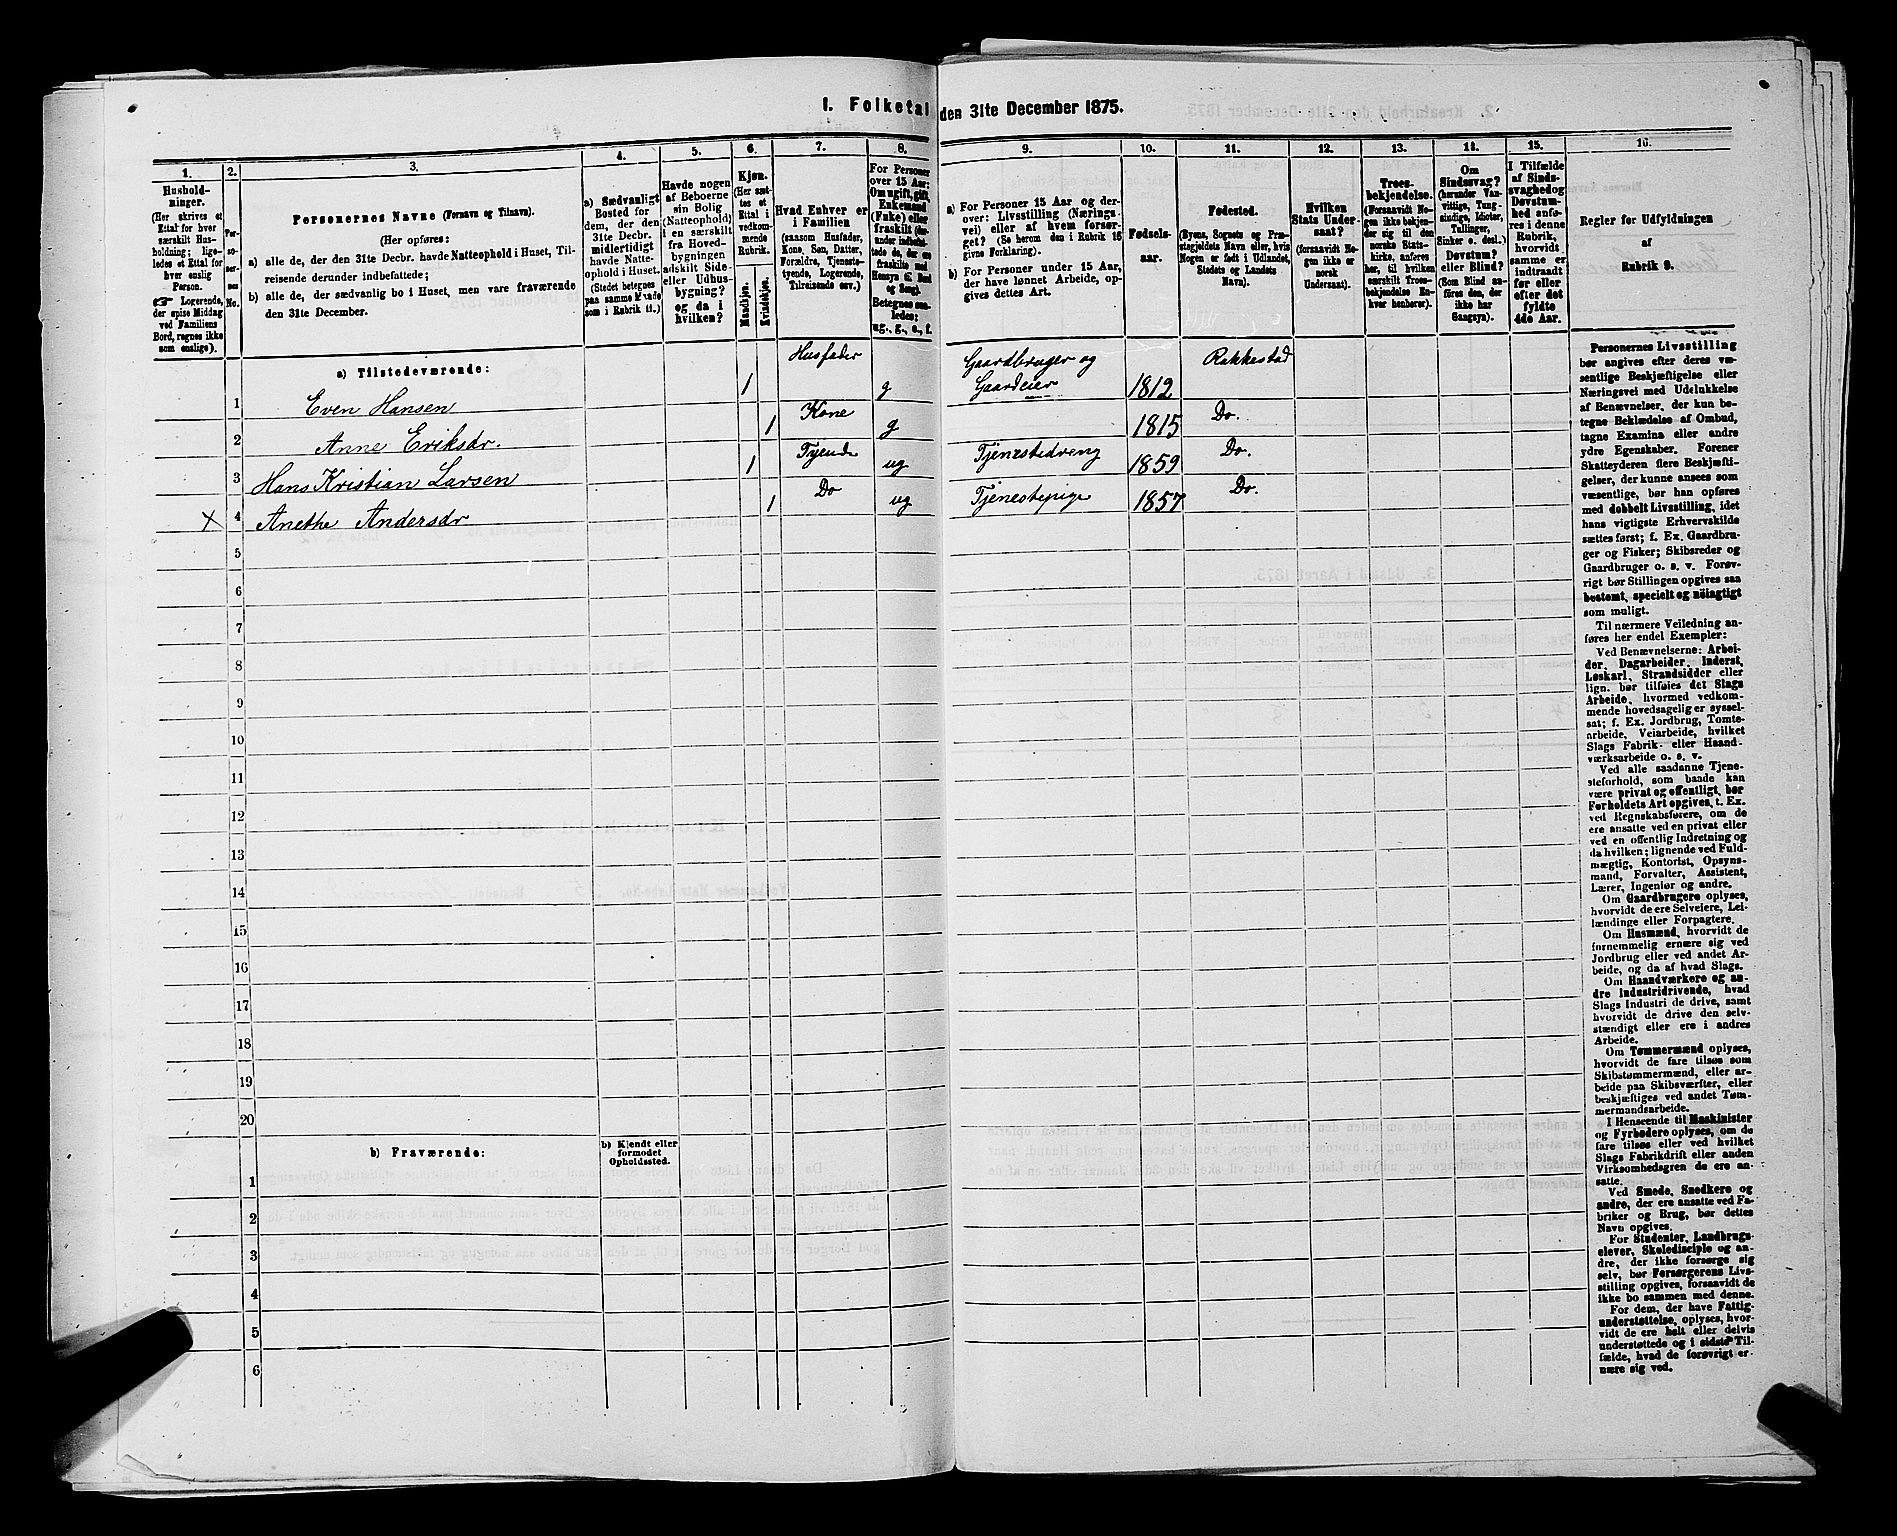 I. Folketal den 31te December 1875.
1. 2. 3. 4. 5. 6. 7. 8. 9. 10. 11. 12. 13. 14. 15. 16.
Hushold-
ninger.
(Her skrives et
Ettal for hver
særskilt Hus-
holdning; lige-
ledes et Ettal for
hver enslig
Person.
☞ Logerende,
der spise Middag
ved Familiens
Bord, regnes ikke
som enslige).
Per-
so-
ner-
nes
No.
Personernes Navne (Fornavn og Tilnavn).
(Her opføres:
a) alle de, der den 31te Decbr. havde Natteophold i Huset, Til-
reisende derunder indbefattede;
b) alle de, der sædvanlig bo i Huset, men vare fraværende
den 31te December.
a) Sædvanligt
Bosted for
dem, der den
31te Decbr.
midlertidigt
havde Natte-
ophold i Huset.
(Stedet betegnes
paa samme Maade
som i Rubrik 11.)
Havde nogen
af Beboerne
sin Bolig
(Natteophold)
i en særskilt
fra Hoved-
bygningen
adskilt Side-
eller Udhus-
bygning?
og da i
hvilken?
Kjøn.
(Her sæt-
tes et
Ettal i
vedkom-
mende
Rubrik.
Mandkjøn.
Kvindekjøn.
Hvad Enhver er
i Familien
(saasom Husfader,
Kone, Søn, Datter,
Forældre, Tjeneste-
tyende, Logerende,
Tilreisende osv.)
For Personer
over 15 Aar:
Om ugift, gift,
Enkemand
(Enke) eller
fraskilt
Betegnes saa-
ledes:
ug., g., e., f.
a) For Personer 15 Aar og der-
over: Livsstilling (Nærings-
vei) eller af hvem forsør-
get? (Se herom den i Rubrik 16
givne Forklaring).
b) For Personer under 15 Aar,
der have lønnet Arbeide, op-
gives dettes Art.
Fødsels-
aar.
Fødested.
(Byens, Sognets og Præ-
stegjeldets Navn eller, hvis
Nogen er født i Udlandet,
Stedets og Landets
Navn).
Hvilken
Stats Under-
saat?
(forsaavidt No-
gen ikke er
norsk
Undersaat).
Troes-
bekjendelse.
(Forsaavidt No-
gen ikke bekjen-
der sig til den
norske Stats-
kirke, anføres
her, til hvilken
særskilt Troes-
bekjendelse En-
hver henhører).
Om
Sindssvag?
(herunder Van-
vittige, Tung-
sindige, Idioter,
Tullinger,
Sinker o. desl.)
Døvstum?
eller Blind?
(Som Blind an-
føres den, der
ikke har
Gangsyn).
I Tilfælde
af Sinds-
svaghed og
Døvstum-
hed anfø-
res i denne
Rubrik,
hvorvidt
samme er
indtraadt
før eller
efter det
fyldte
4de Aar.
Regler for Udfyldningen
af
Rubrik 9.
a) Tilstedeværende:
1 Even Hansen 1 Husfader g Gaardbruger og Gaardeier 1812 Rakkestad
2 Anne Eriksdr. 1 Kone g 1815 Do.
3 Hans Kristian Larsen 1 Tyende ug Tjenestedreng 1859 Do.
X 4 Anethe Andersdr 1 Do ug Tjenestepige 1857 Do.
5
6
7
8
9
10
11
12
13
14
15
16
17
18
19
20
b) Fraværende:
b) Kjendt eller
formodet
Opholdssted.
1
2
3
4
5
6
Personernes Livsstilling
bør angives efter deres væ-
sentlige Beskjæftigelse eller
Næringsvei med Udelukkelse
af Benævnelser, der kun be-
tegne Beklædelse af Ombud,
tagne Examina eller andre
ydre Egenskaber. Forener
Skatteyderen flere Beskjæfti-
gelser, der kunne ansees som
væsentlige, bør han opføres
med dobbelt Livsstilling, idet
hans vigtigste Erhvervskilde
sættes først; f. Ex. Gaardbru-
ger og Fisker; Skibsreder og
Gaardbruger o. s. v. Forøv-
rigt bør Stillingen opgives saa
bestemt, specielt og nøiagtigt
som muligt.
Til nærmere Veiledning an-
føres her endel Exempler:
Ved Benævnelserne: Arbei-
der, Dagarbeider, Inderst,
Løskarl, Strandsidder eller
lign. bør tilføies det Slags
Arbeide, hvormed vedkom-
mende hovedsagelig er syssel-
sat; f. Ex. Jordbrug, Tomte-
arbeide, Veiarbeide, hvilket
Slags Fabrik- eller Haand-
værksarbeide o. s. v.
Ved alle saadanne Tjene-
steforhold, som baade kan
være privat og offentligt, bør
Forholdets Art opgives, t. Ex.
ved Regnskabsførere, om de
ere ansatte ved en privat eller
ved en offentlig Indretning og
da hvilken; lignende ved Fuld-
mægtig, Kontorist, Opsyns-
mand, Forvalter, Assistent,
Lærer, Ingeniør og andre.
Om Gaardbrugere oplyses,
hvorvidt de ere Selveiere, Lei-
lændinge eller Forpagtere.
Om Husmænd, hvorvidt de
fornemmelig ernære sig ved
Jordbrug eller ved andet Ar-
beide, og da af hvad Slags.
Om Haandværkere og an-
dre Industridrivende, hvad
Slags Industri de drive, samt
hvorvidt de drive den selv-
stændigt eller ere i andres
Arbeide.
Om Tømmermænd oplyses,
hvorvidt de fare tilsøs som
Skibstømmermænd, eller ar-
beide paa Skibsværfter, eller
beskjæftiges ved andet Tøm-
mermandsarbeide.
I Henseende til Maskinister
og Fyrbødere oplyses, om de
fare tilsøs eller ved hvilket
Slags Fabrikdrift eller anden
Virksomhedsgren de ere an-
satte.
Ved Smede, Snedkere og
andre, der ere ansatte ved Fa-
briker og Brug, bør dettes
Navn opgives.
For Studenter, Landbrugs-
elever, Skoledisciple og an-
dre, der ikke forsørge sig
selv, bør Forsørgerens Livs-
stilling opgives, forsaavidt de
ikke bo sammen med denne.
For dem, der have Fattig-
understøttelse, oplyses, hvor-
vidt de ere helt eller delvis
understøttede og i sidste Til-
fælde, hvad de forøvrigt er-
nære sig ved.